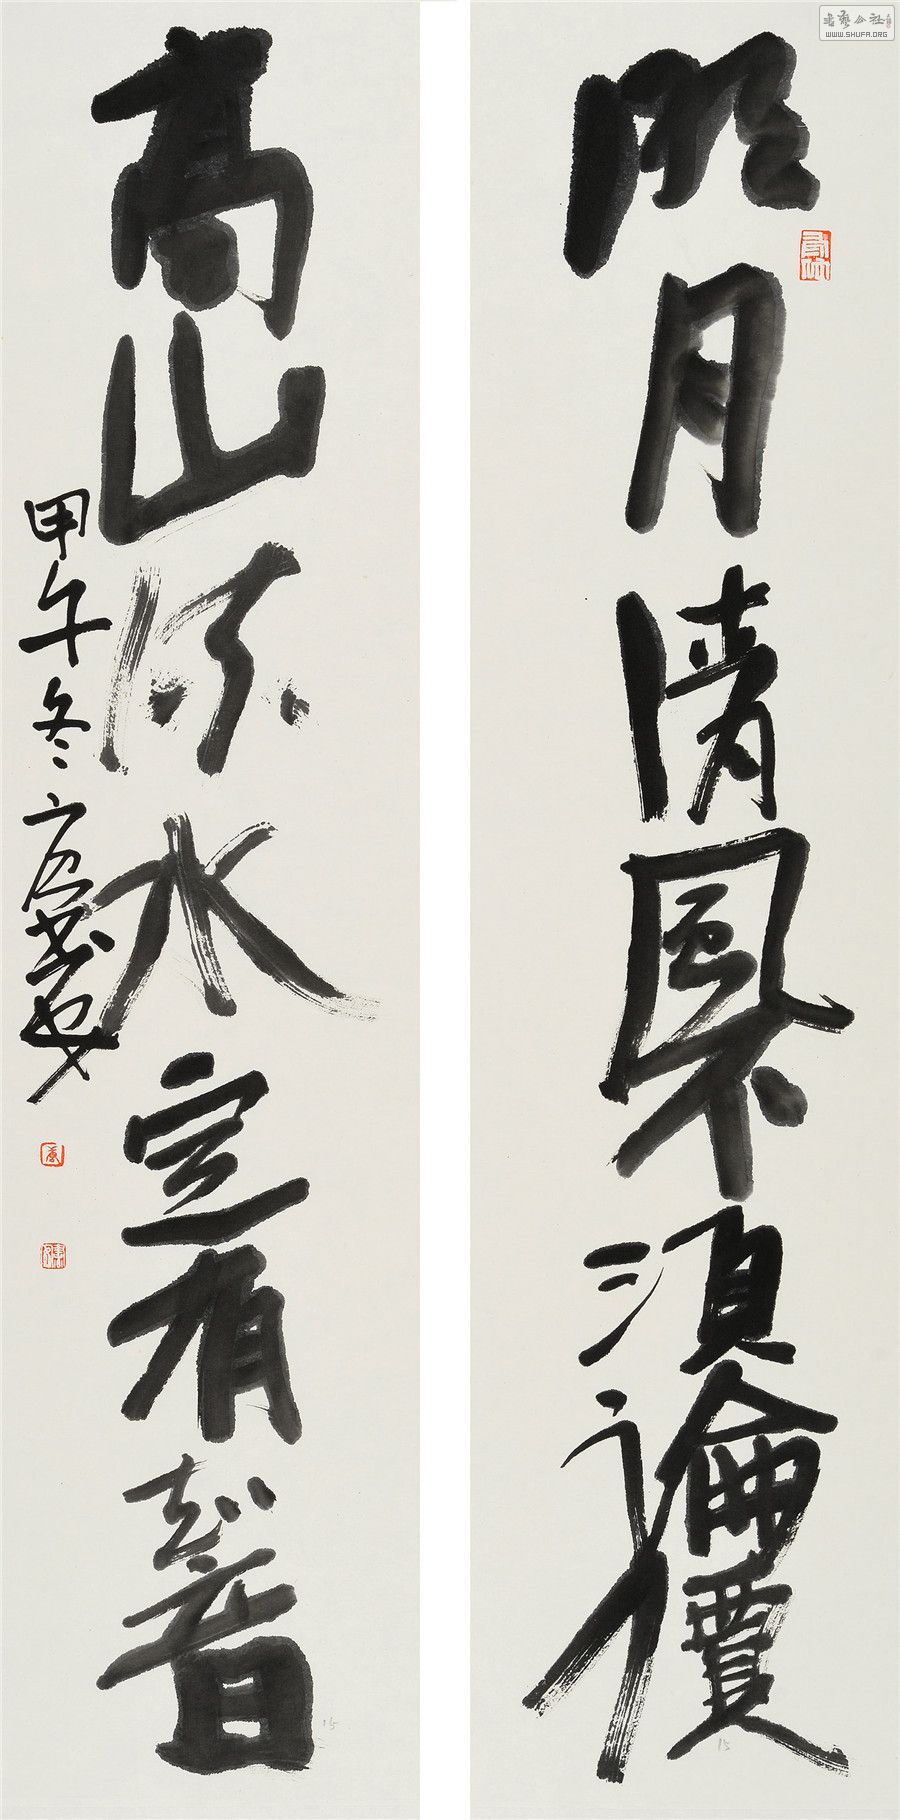 明月清風不須論價
高山流水定有知音
甲午冬
書藝公社
WWW.SHUFA.ORG
15
15